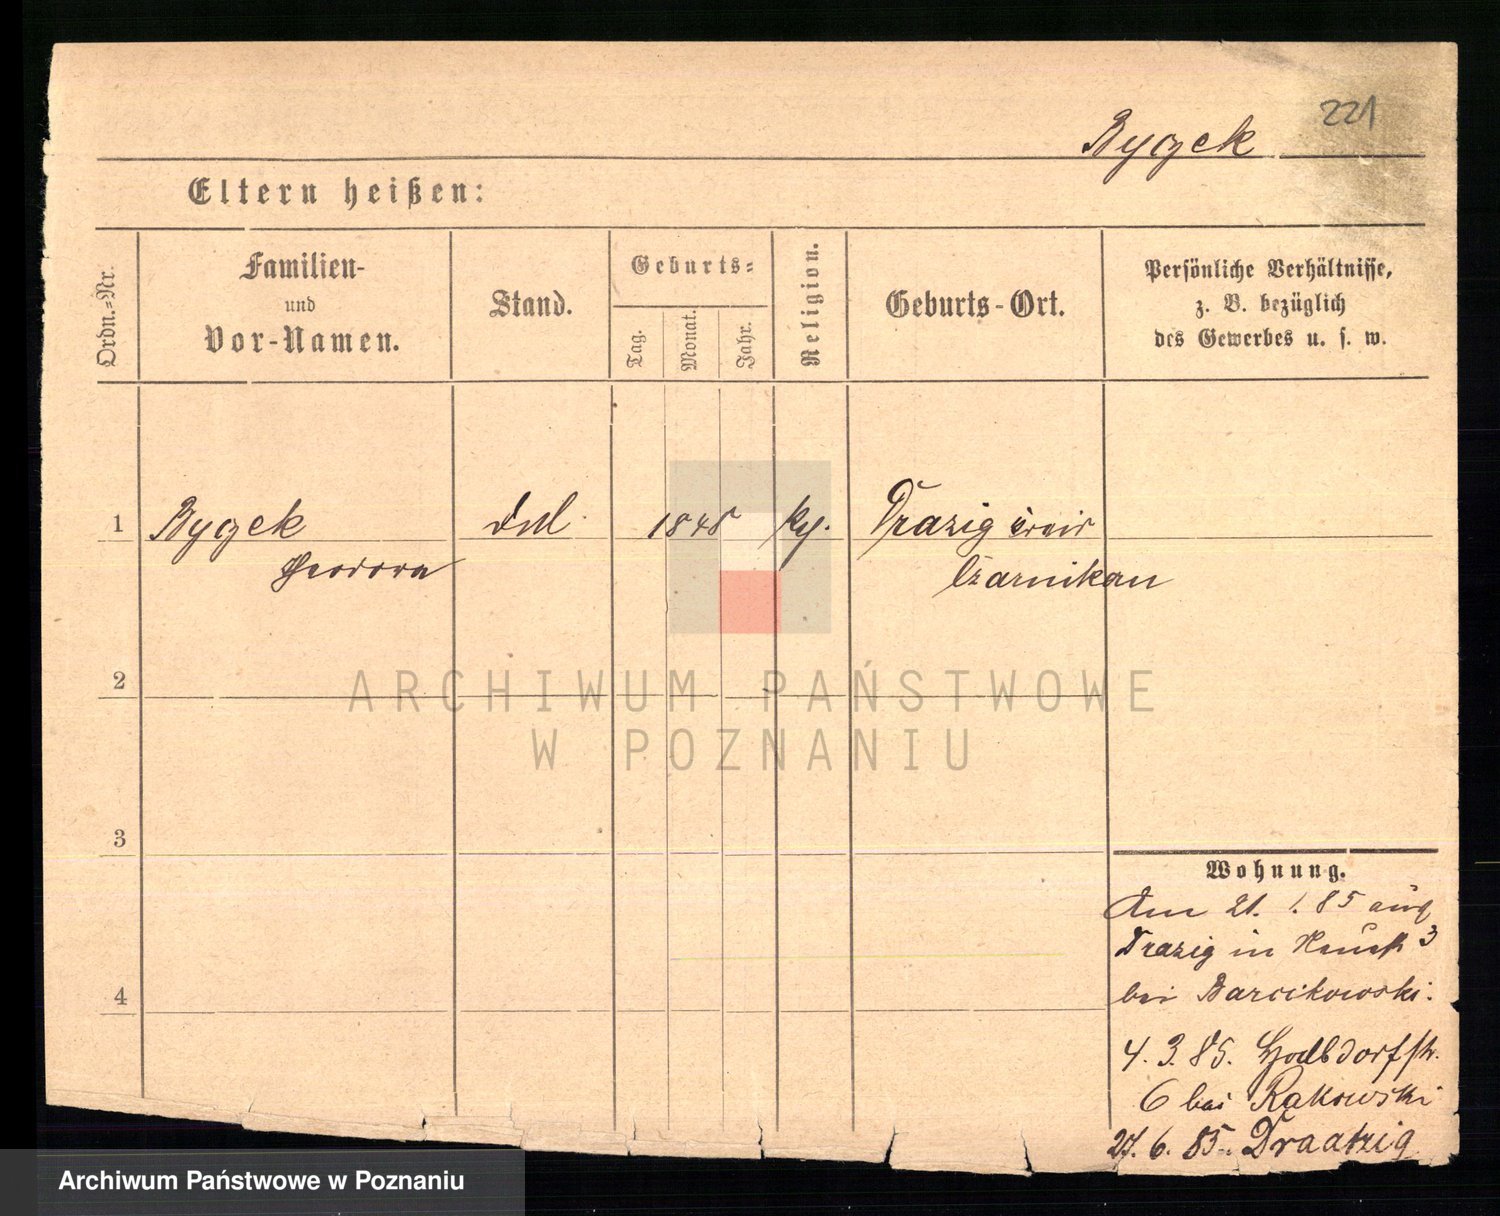 221
Byczek
Eltern heißen:
Ordn.-Nr.
Familien-
und
Vor-Namen.
Stand.
Geburts-
Tag.
Monat.
Jahr.
Religion.
Geburts-Ort.
Persönliche Verhältnisse,
z. B. bezüglich
des Gewerbes u. s. w.
1 Byczek 1845 Drazig
Theodora Czarnikau
2
3
4
Wohnung.
Am 21. 1. 85 aus
Drazig in 3
bei Barcikowski.
4. 3. 85.
6 bei Rakowski
27. 6. 85. Draatzig
ARCHIWUM PAŃSTWOWE
W POZNANIU
Archiwum Państwowe w Poznaniu